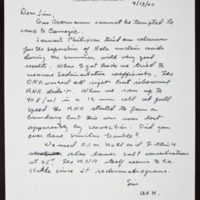 9/13/60
Dear Jim,
Gus cannot be tempted to
come to Carnegie.
Lennart Philipson tried an
for the separation of HeLa nucleic acids
during the summer with very good
results. When I got back we tried to
measure sedimentation coefficients. The
DNA moved at right but
RNA didn't. When we ran up to
in a 12 mm cell at full
speed the RNA started to form a
boundary but this was soon lost
apparently by convection. Did you
ever have similar trouble?
We used 0.1 M NaCl and
the lower salt concentration
at 25°. The RNA itself seems to be
stable since it rechromatographs.